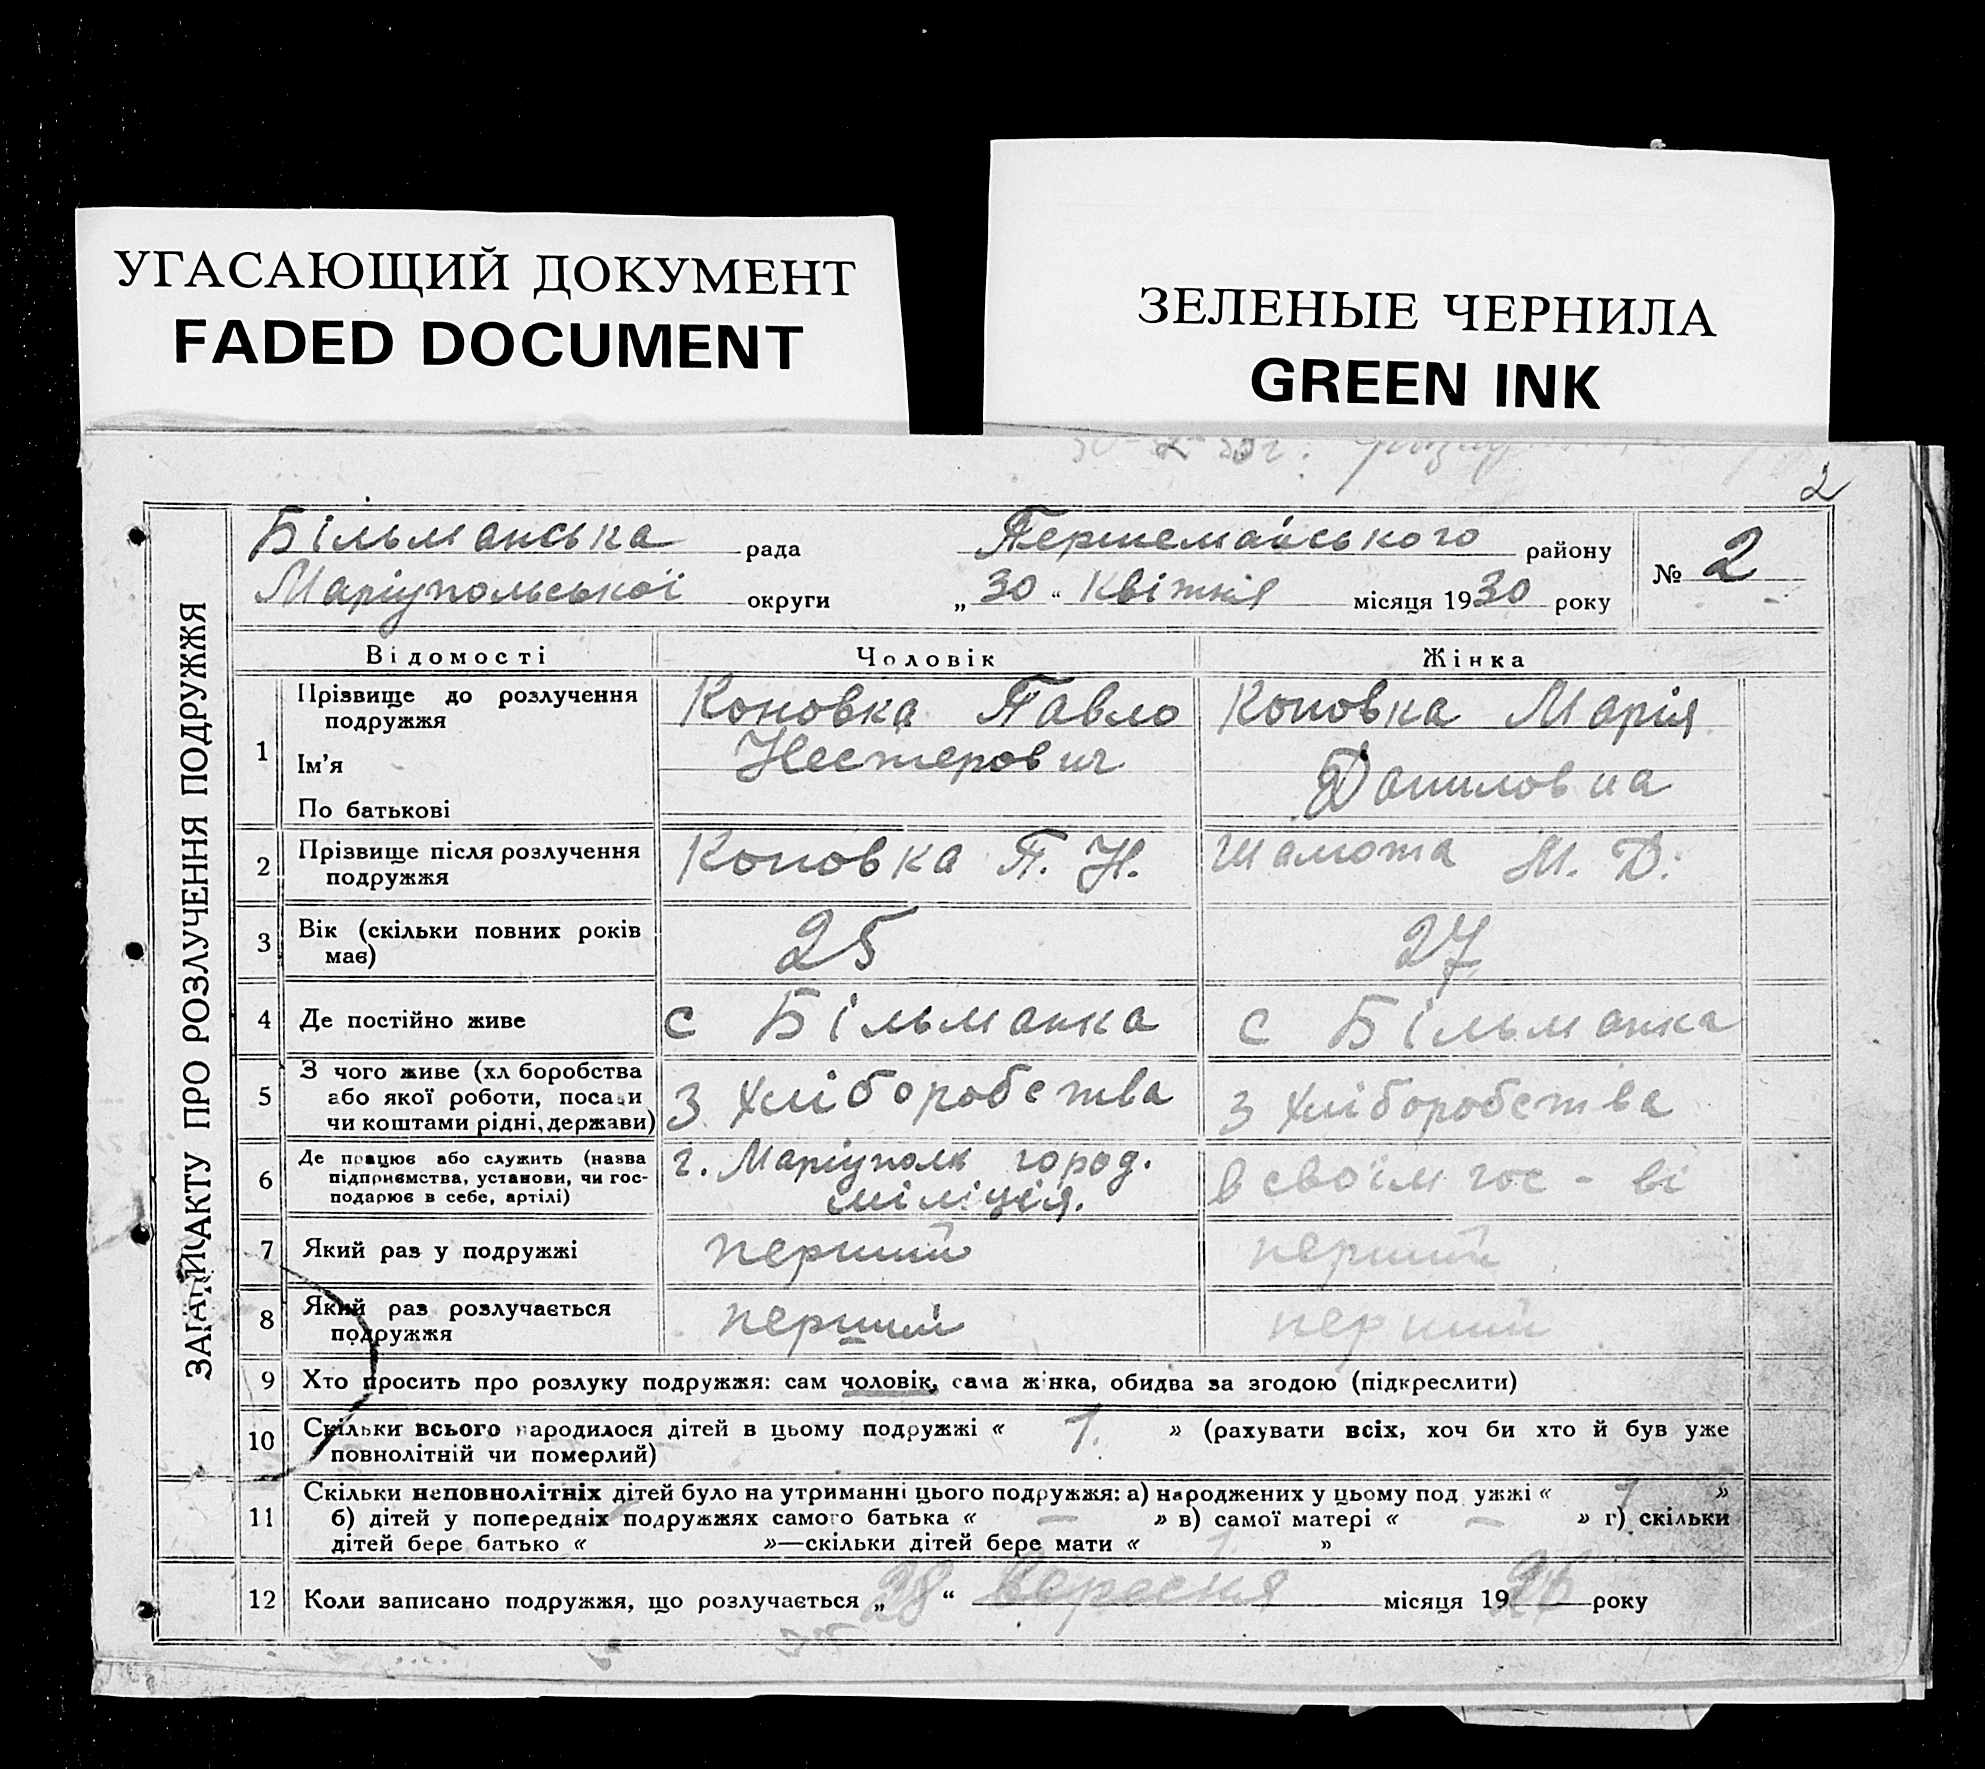 УГАСАЮЩИЙ ДОКУМЕНТ
FADED DOCUMENT
ЗЕЛЕНЫЕ ЧЕРНИЛА
GREEN INK
2
ЗАПИС АКТУ ПРО РОЗЛУЧЕННЯ ПОДРУЖЖЯ
Більманська рада Першемайського району № 2
Маріупольської округи „ 30 “ Квітня місяця 1930 року
Відомості Чоловік Жінка
1 Прізвище до розлучення подружжя Коновка Павло Коновка Марія
Ім’я Нестерович Даниловна
По батькові
2 Прізвище після розлучення подружжя Коновка П. Н. Шамота М. Д.
3 Вік (скільки повних років має) 25 27
4 Де постійно живе с Більманка с Більманка
5 З чого живе (хліборобства або якої роботи, посади чи коштами рідні, держави) з хліборобства з хліборобства
6 Де працює або служить (назва підприємства, установи, чи господарює в себе, артілі) г. Маріуполь город. міліція. в своїм гос-ві
7 Який раз у подружжі перший перший
8 Який раз розлучається подружжя перший перший
9 Хто просить про розлуку подружжя: сам чоловік, сама жінка, обидва за згодою (підкреслити)
10 Скільки всього народилося дітей в цьому подружжі « 1. » (рахувати всіх, хоч би хто й був уже
повнолітній чи померлий)
11 Скільки неповнолітніх дітей було на утриманні цього подружжя: а) народжених у цьому подружжі « 1 »
б) дітей у попередніх подружжях самого батька « — » в) самої матері « — » г) скільки
дітей бере батько « »—скільки дітей бере мати « 1. »
12 Коли записано подружжя, що розлучається „ 28 “ Вересня місяця 1926 року